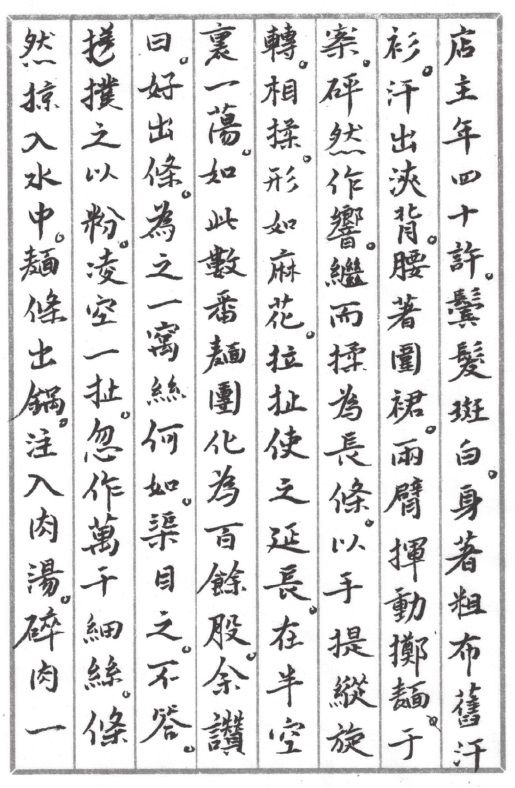 店主年四十許。鬢髮斑白。身著粗布舊汗
衫。汗出浹背。腰著圍裙。兩臂揮動擲麵于
案。砰然作響。繼而揉為長條。以手提縱旋
轉。相揉。形如麻花。拉扯使之延長。在半空
裏一蕩。如此數番麵團化為百餘股。余讚
曰。好出條。為之一窩絲何如。渠目之。不答。
搓撲之以粉。凌空一扯。忽作萬千細絲。條
然掠入水中。麵條出鍋。注入肉湯。碎肉一